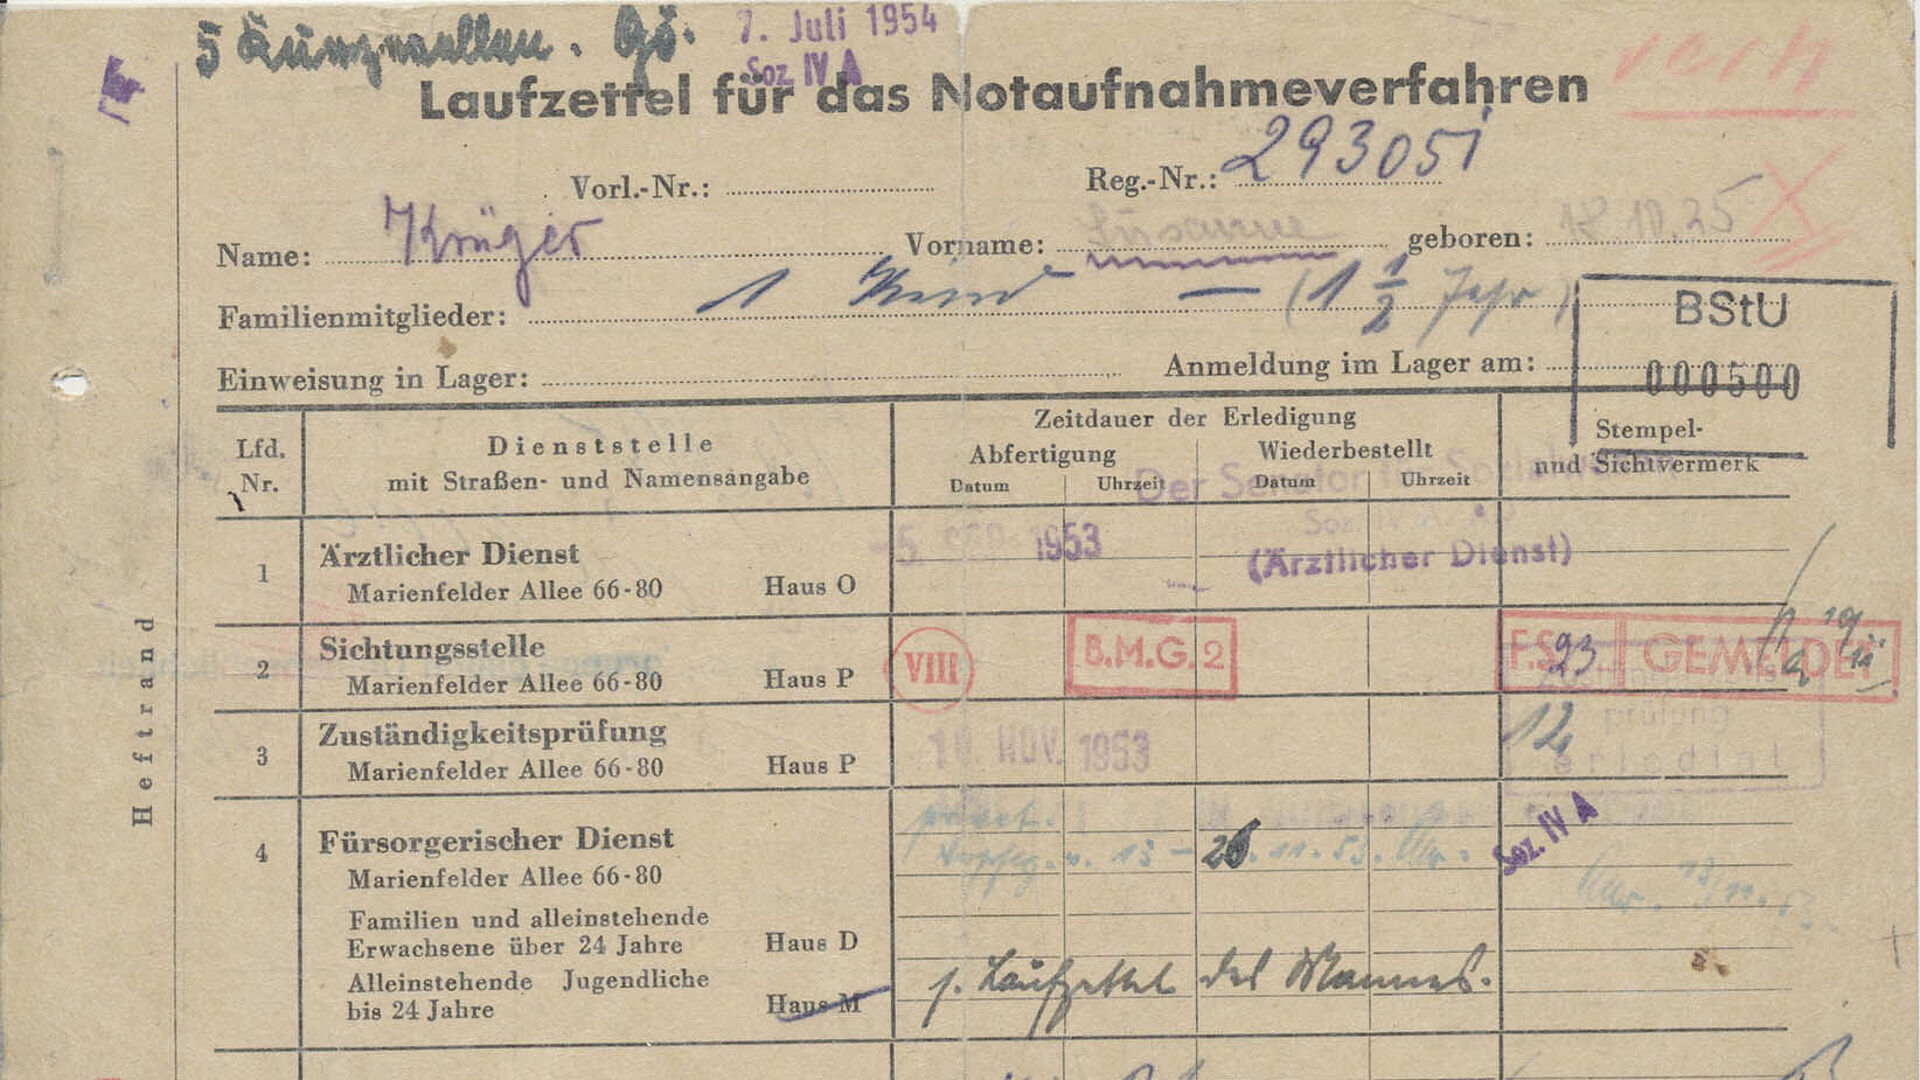 7. Juli 1954
Soz IV A
Laufzettel für das Notaufnahmeverfahren
Vorl.-Nr.:
Reg.-Nr.: 293051
Name: Krüger Vorname: Susanne geboren: 10.25
Familienmitglieder: 1 Kind — (1 1/2 Jahr)
BStU
000500
Einweisung in Lager: Anmeldung im Lager am:
Lfd. Nr.
Dienststelle
mit Straßen- und Namensangabe
Zeitdauer der Erledigung
Abfertigung Wiederbestellt
Datum Uhrzeit Datum Uhrzeit
Stempel-
und Sichtvermerk
Der Senator
Soz. IV A
(Ärztlicher Dienst)
1 Ärztlicher Dienst 5 SEP. 1953
Marienfelder Allee 66-80 Haus O
2 Sichtungsstelle VIII B.M.G. 2 F.S. 23 GEMELDET
Marienfelder Allee 66-80 Haus P
3 Zuständigkeitsprüfung NOV. 1953 12
prüfung
erledigt
Marienfelder Allee 66-80 Haus P
4 Fürsorgerischer Dienst
Soz. IV A
Marienfelder Allee 66-80
Familien und alleinstehende
Erwachsene über 24 Jahre Haus D
Alleinstehende Jugendliche
bis 24 Jahre Haus M
s. Laufzettel des Mannes.
Heftrand